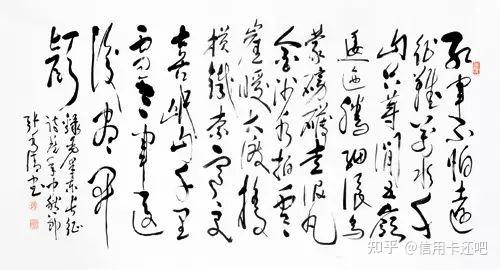 红军不怕远
征难万水千
山只等闲五岭
逶迤腾细浪乌
蒙磅礴走泥丸
金沙水拍云
崖暖大渡桥
横铁索寒更
喜岷山千里
雪三军过
后尽开
颜
录毛泽东长征
诗 年中秋节
张 书
知乎 @信用卡还吧